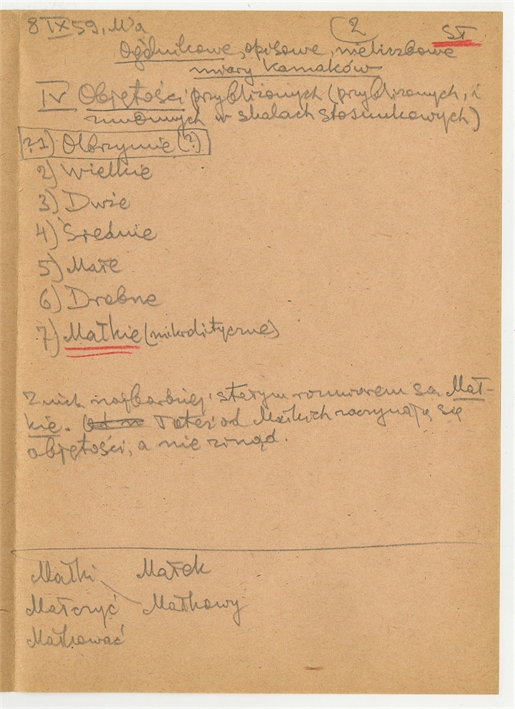 8 IX 59, M'a (2 ST
Ogólnikowe, opisowe, nieliczbowe
miary kamaków
IV Objętości przybliżonych (przybliżonych, i
w skalach stosunkowych)
? 1) Olbrzymie (?)
2) Wielkie
3) Duże
4) Średnie
5) Małe
6) Drobne
7) Małkie (mikrolityczne)
Z nich najbardziej stałym rozmiarem są Mał-
kie. Toteż od Małkich zaczynają się
objętości, a nie zinąd.
Małki Małek
Małczyć Małkowy
Małkować